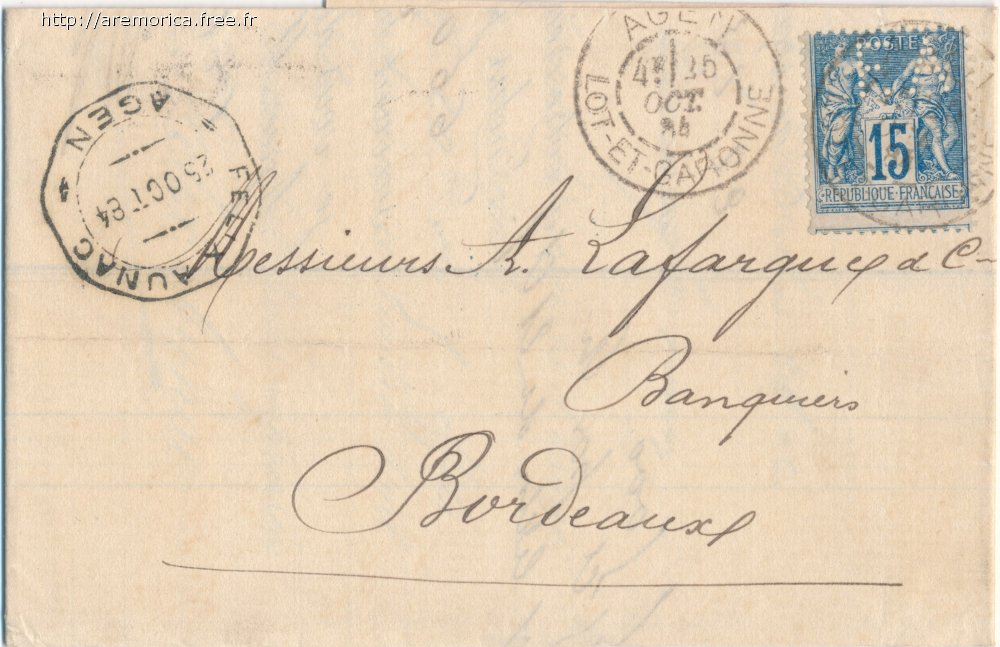 http://aremorica.free.fr
AGEN
4E 25
OCT.
84
LOT-ET-GARONNE
POSTES
15
RÉPUBLIQUE FRANÇAISE
AGEN
25 OCT. 84
AUNAC
Messieurs A. Lafargue & Cie
Banquiers
Bordeaux